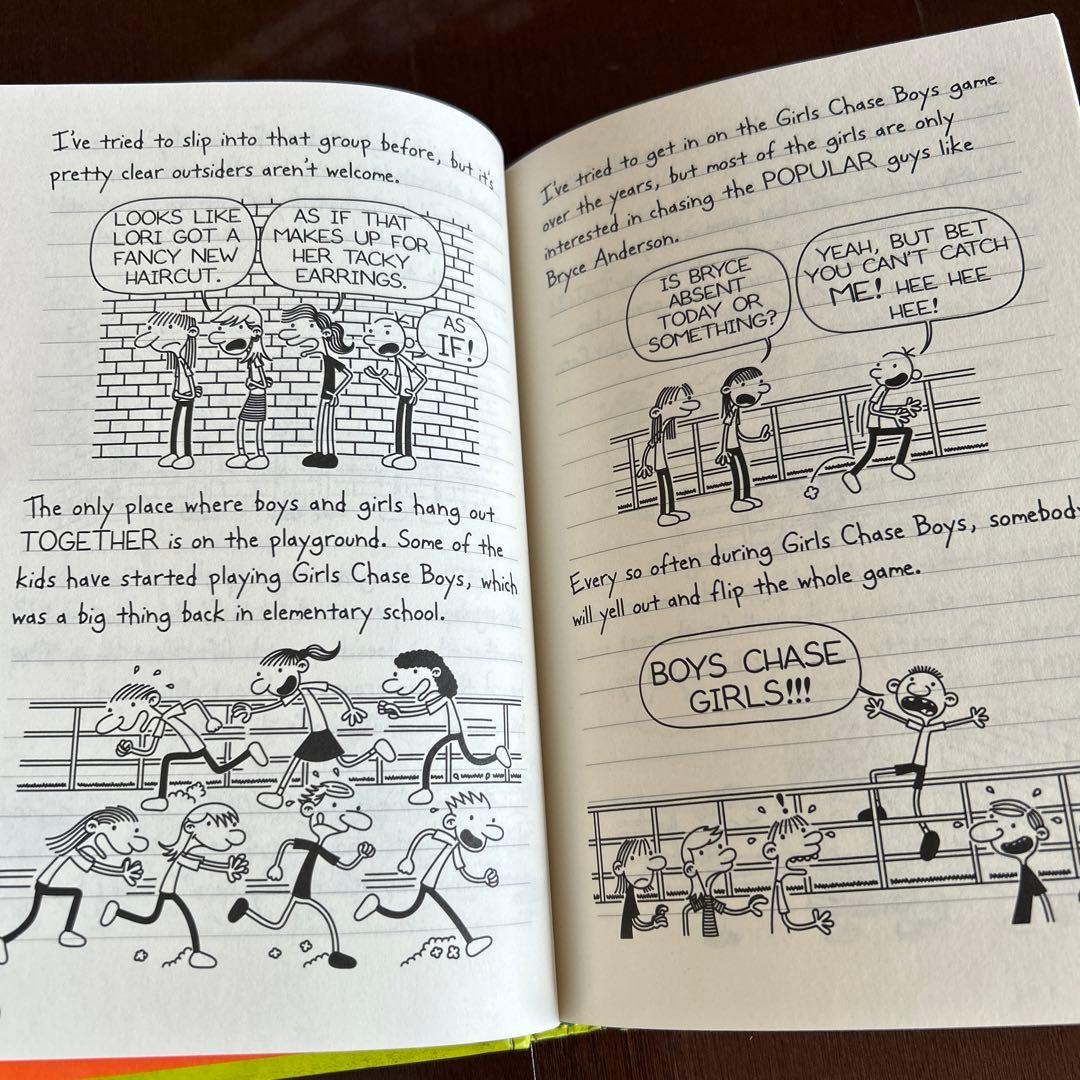 I've tried to slip into that group before, but it's
pretty clear outsiders aren't welcome.
LOOKS LIKE
LORI GOT A
FANCY NEW
HAIRCUT.
AS IF THAT
MAKES UP FOR
HER TACKY
EARRINGS.
AS
IF!
The only place where boys and girls hang out
TOGETHER is on the playground. Some of the
kids have started playing Girls Chase Boys, which
was a big thing back in elementary school.
I've tried to get in on the Girls Chase Boys game
over the years, but most of the girls are only
interested in chasing the POPULAR guys like
Bryce Anderson.
IS BRYCE
ABSENT
TODAY OR
SOMETHING?
YEAH, BUT BET
YOU CAN'T CATCH
ME! HEE HEE
HEE!
Every so often during Girls Chase Boys, somebody
will yell out and flip the whole game.
BOYS CHASE
GIRLS!!!
!